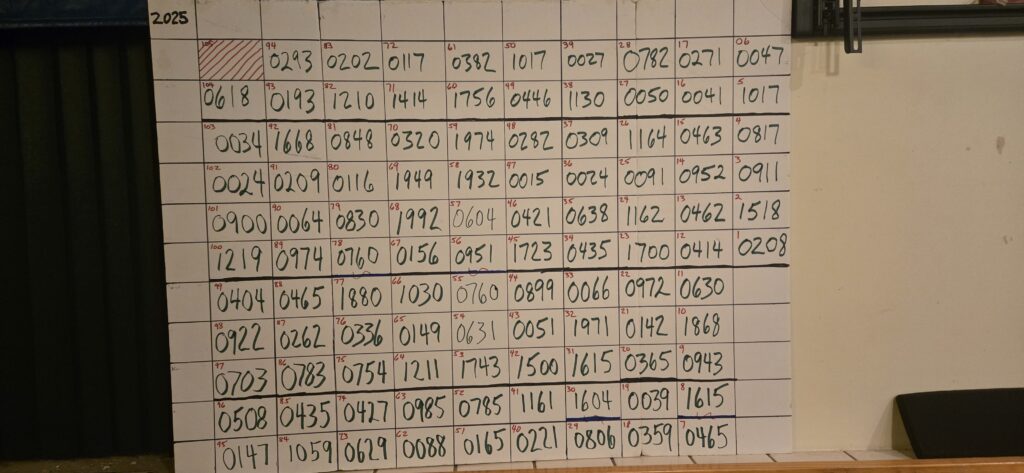 2025
105 94 0293 83 0202 72 0117 61 0382 50 1017 39 0027 28 0782 17 0271 06 0047
104 0618 93 0193 82 1210 71 1414 60 1756 49 0446 38 1130 27 0050 16 0041 5 1017
103 0034 92 1668 81 0848 70 0320 59 1974 48 0282 37 0309 26 1164 15 0463 4 0817
102 0024 91 0209 80 0116 69 1949 58 1932 47 0015 36 0024 25 0091 14 0952 3 0911
101 0900 90 0064 79 0830 68 1992 57 0604 46 0421 35 0638 24 1162 13 0462 2 1518
100 1219 89 0974 78 0760 67 0156 56 0951 45 1723 34 0435 23 1700 12 0414 1 0208
99 0404 88 0465 77 1880 66 1030 55 0760 44 0899 33 0066 22 0972 11 0630
98 0922 87 0262 76 0336 65 0149 54 0631 43 0051 32 1971 21 0142 10 1868
97 0703 86 0783 75 0754 64 1211 53 1743 42 1500 31 1615 20 0365 9 0943
96 0508 85 0435 74 0427 63 0985 52 0785 41 1161 30 1604 19 0039 8 1615
95 0147 84 1059 73 0629 62 0088 51 0165 40 0221 29 0806 18 0359 7 0465